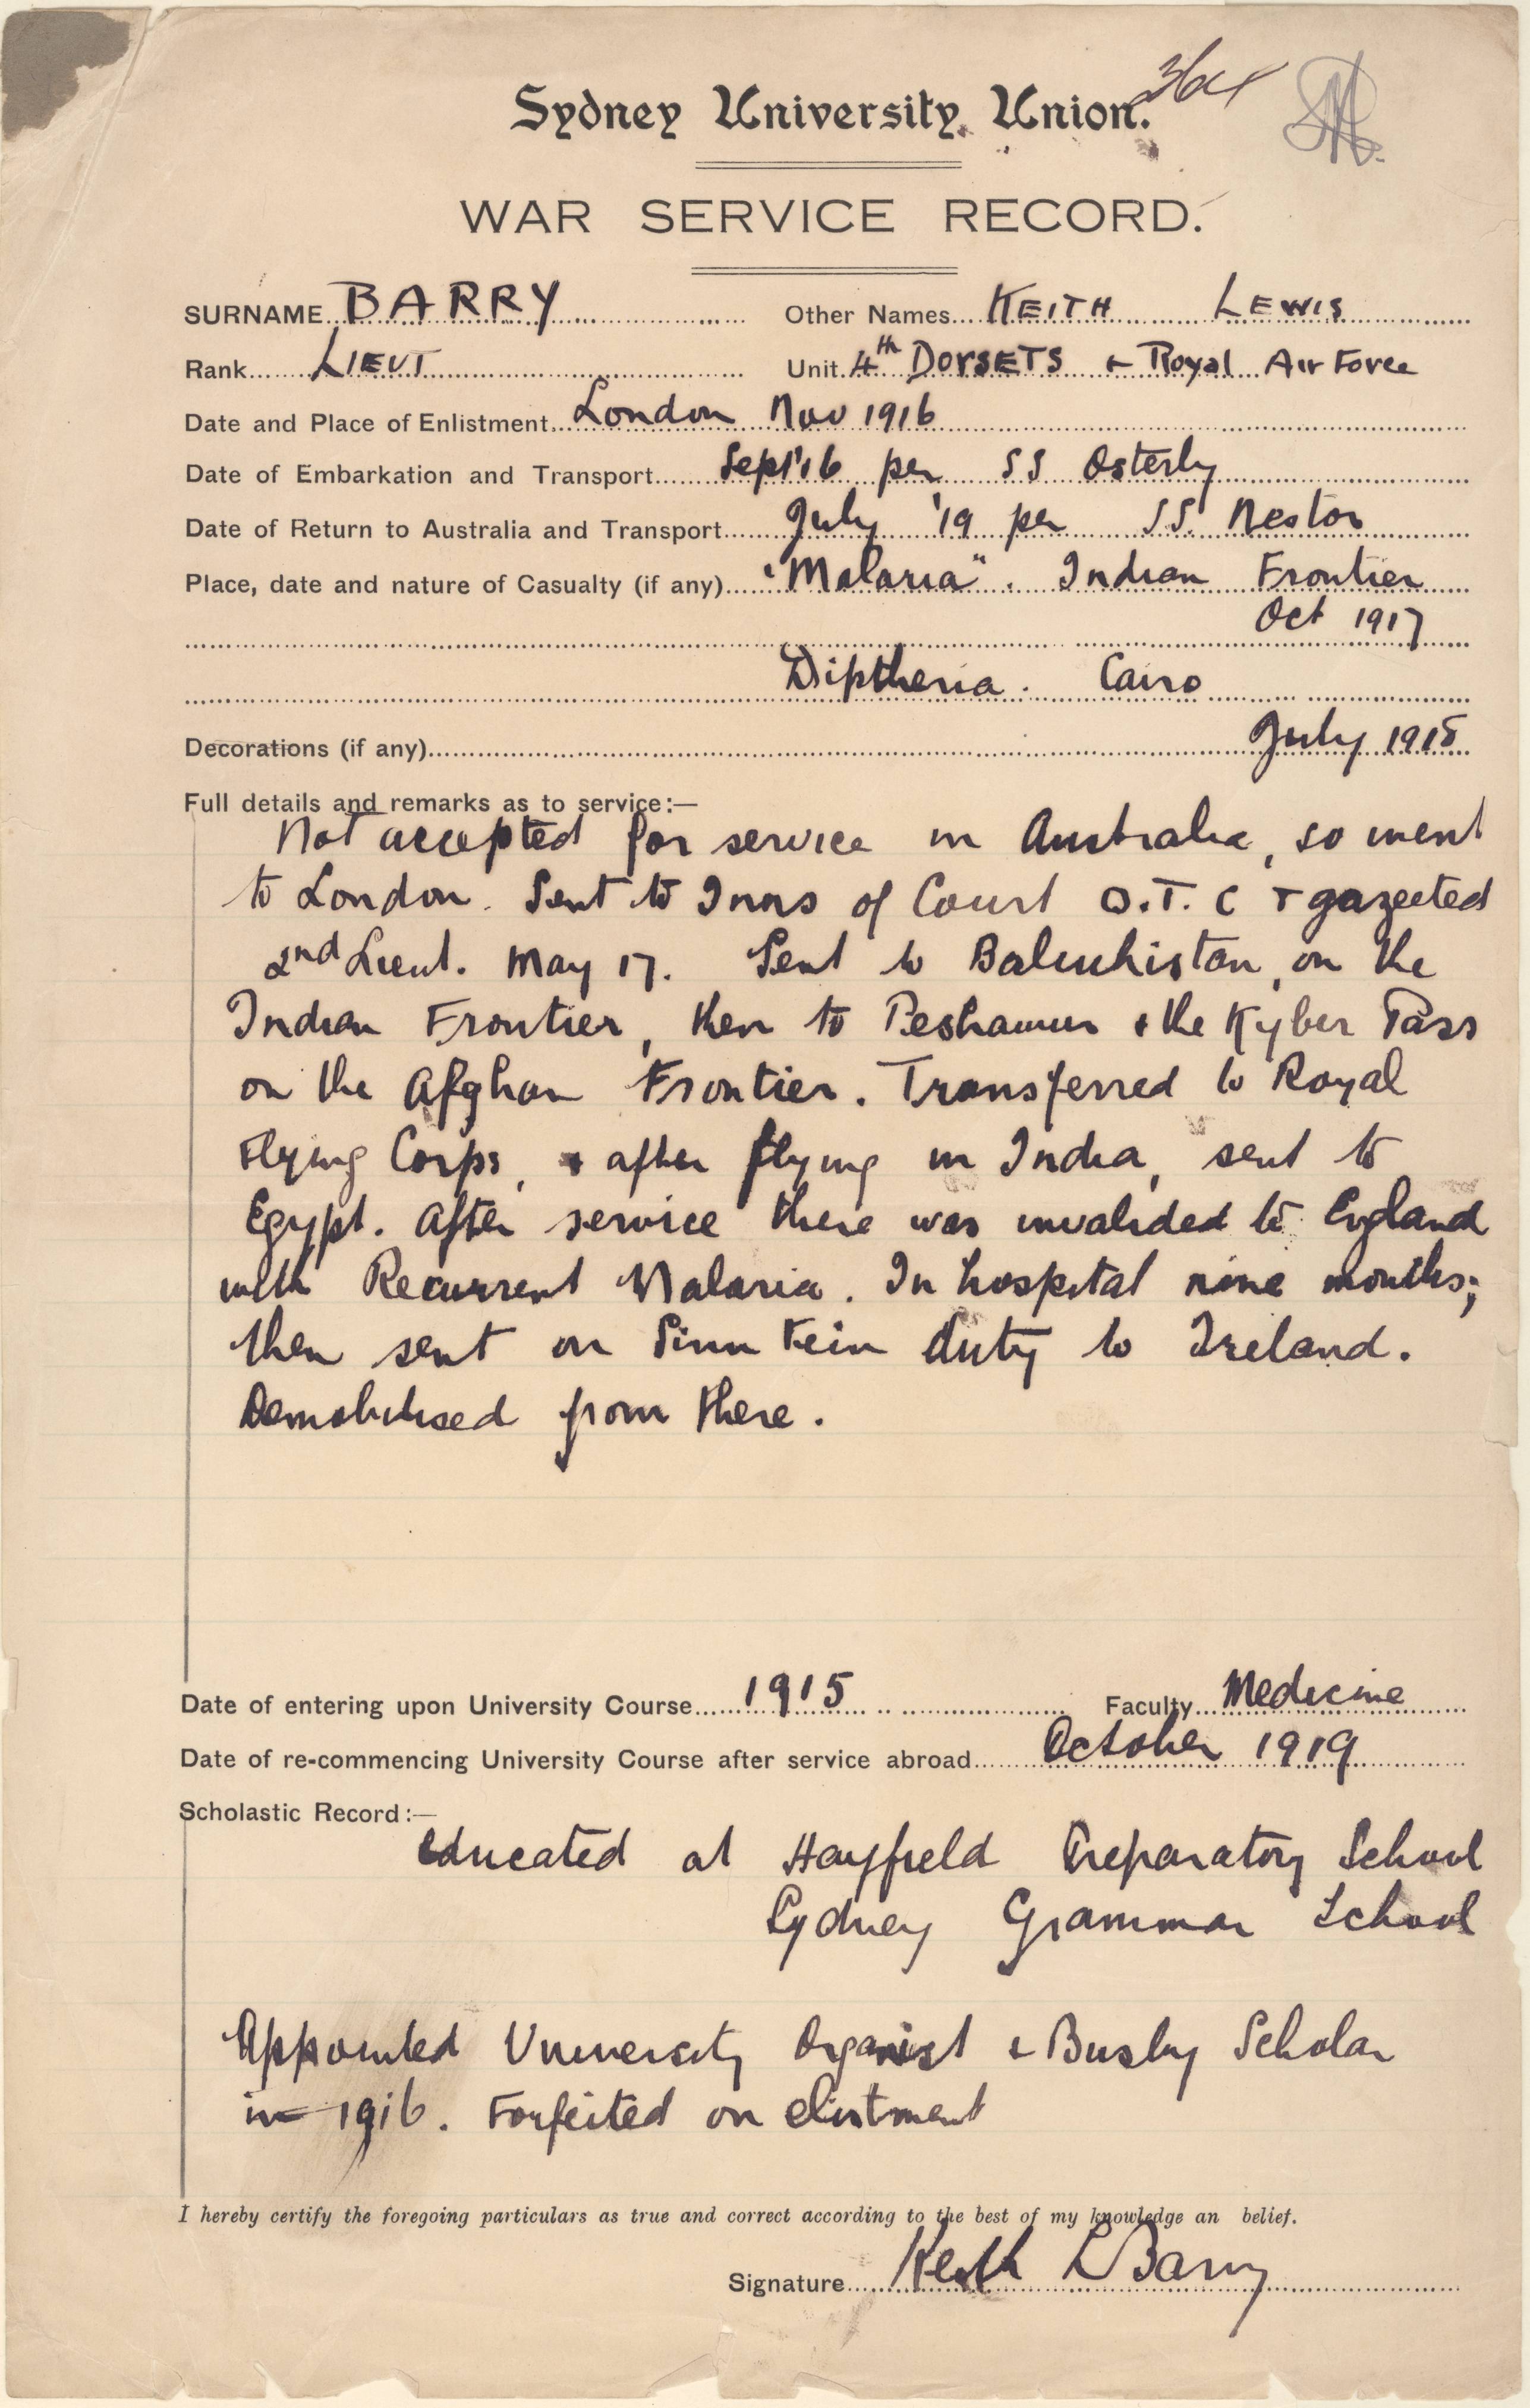 Sydney University Union.
WAR SERVICE RECORD.
SURNAME BARRY Other Names KEITH LEWIS
Rank LIEUT Unit 4th DORSETS + Royal Air Force
Date and Place of Enlistment London Nov 1916
Date of Embarkation and Transport Sept '16 per SS Osterly
Date of Return to Australia and Transport July '19 per S.S. Nestor
Place, date and nature of Casualty (if any) "Malaria". Indian Frontier
Oct 1917
Diptheria. Cairo
Decorations (if any) July 1918
Full details and remarks as to service:—
Not accepted for service in Australia, so went
to London. Sent to Inns of Court O.T.C + gazeeted
2nd Lieut. May 17. Sent to Baluchistan, on the
Indian Frontier, then to Peshawur + the Kyber Pass
on the Afghan Frontier. Transferred to Royal
Flying Corps, + after flying in India, sent to
Egypt. After service there was invalided to England
with Recurrent Malaria. In hospital nine months;
then sent on Sinn Fein duty to Ireland.
Demobilised from there.
Date of entering upon University Course 1915 Faculty Medicine
Date of re-commencing University Course after service abroad October 1919
Scholastic Record:—
Educated at Hayfield Preparatory School
Sydney Grammar School
Appointed University Organist + Busby Scholar
in 1916. Forfeited on elistment
I hereby certify the foregoing particulars as true and correct according to the best of my knowledge an belief.
Signature Keith L Barry